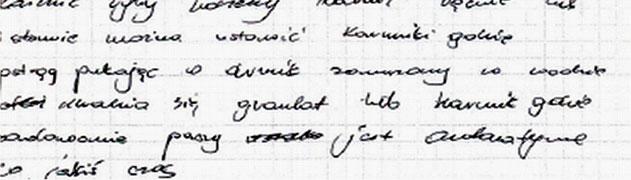 stawie można ustawić karmniki gdzie
pstrąg pukając w drucik zanurzony w wodzie
uwalnia się granulat lub karmnik gdzie
zadawanie paszy jest automatyczne
co jakiś czas